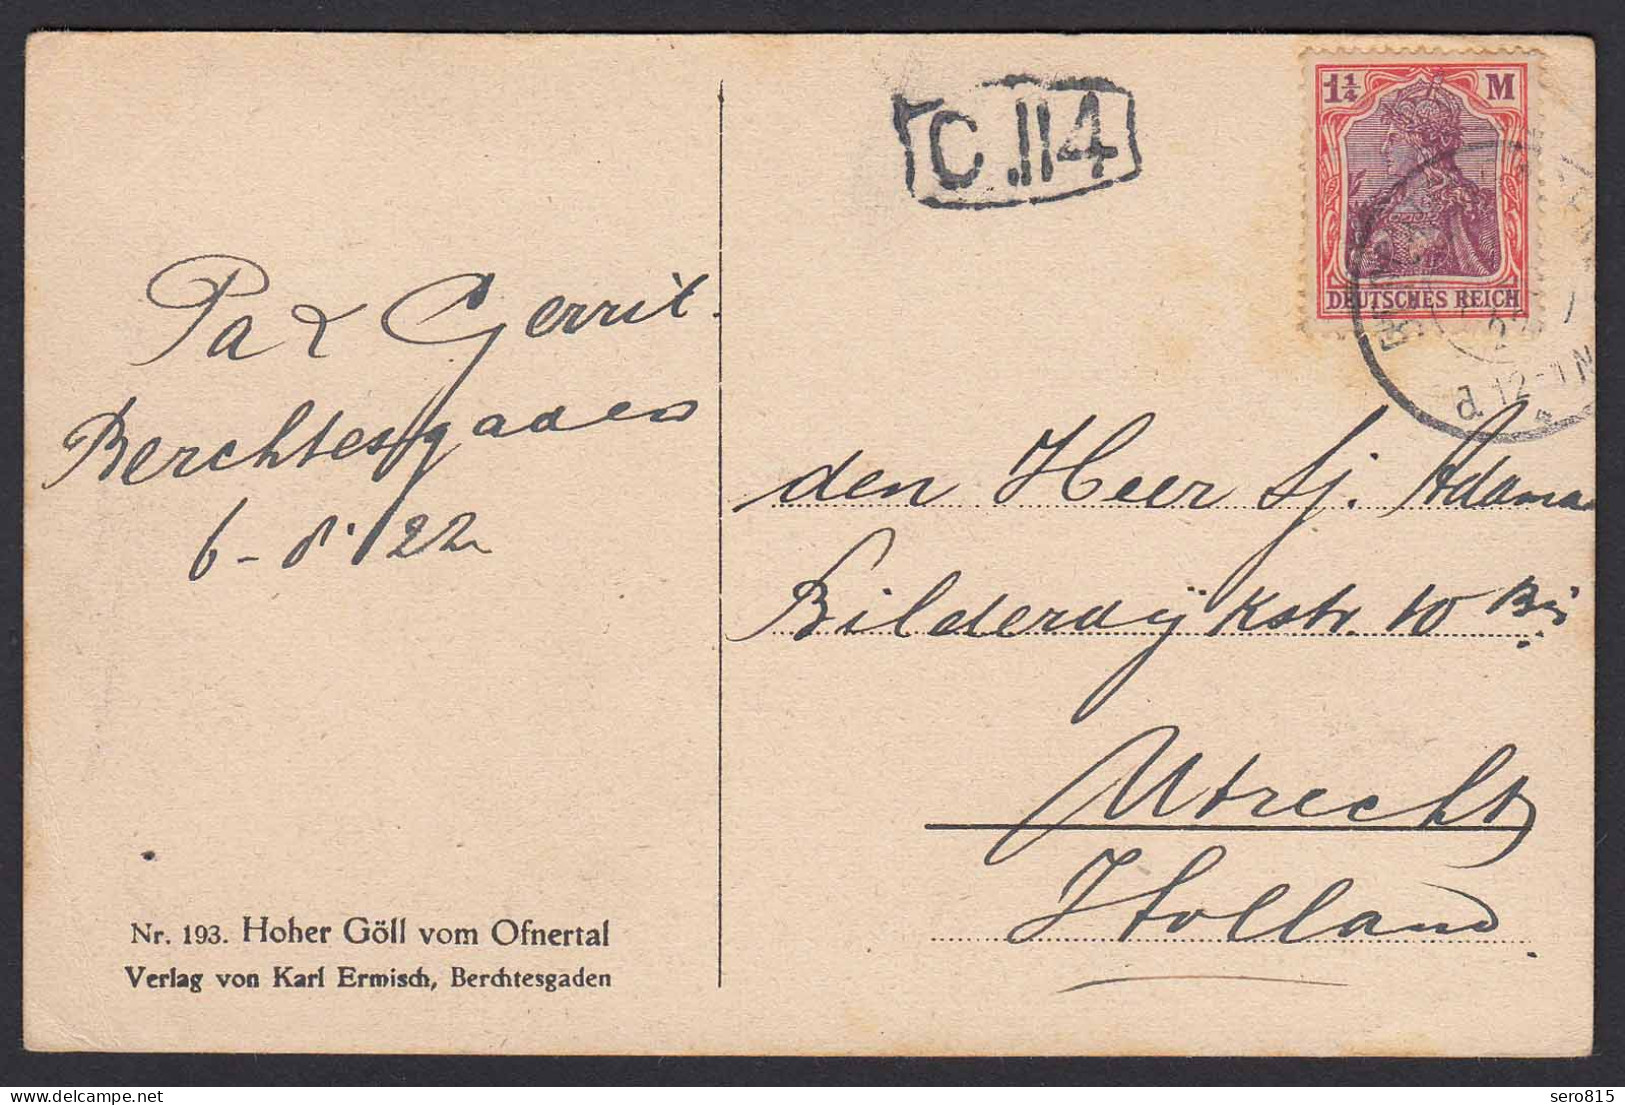 C 114
1¼ M
DEUTSCHES REICH
22
d. 12-1 N
Pa & Gerrit.
Berchtesgaden
6-8-'22
den Heer Sj. Adama
Bilderdijkstr. 10 Bis
Utrecht
Holland
Nr. 193. Hoher Göll vom Ofnertal
Verlag von Karl Ermisch, Berchtesgaden
sero815